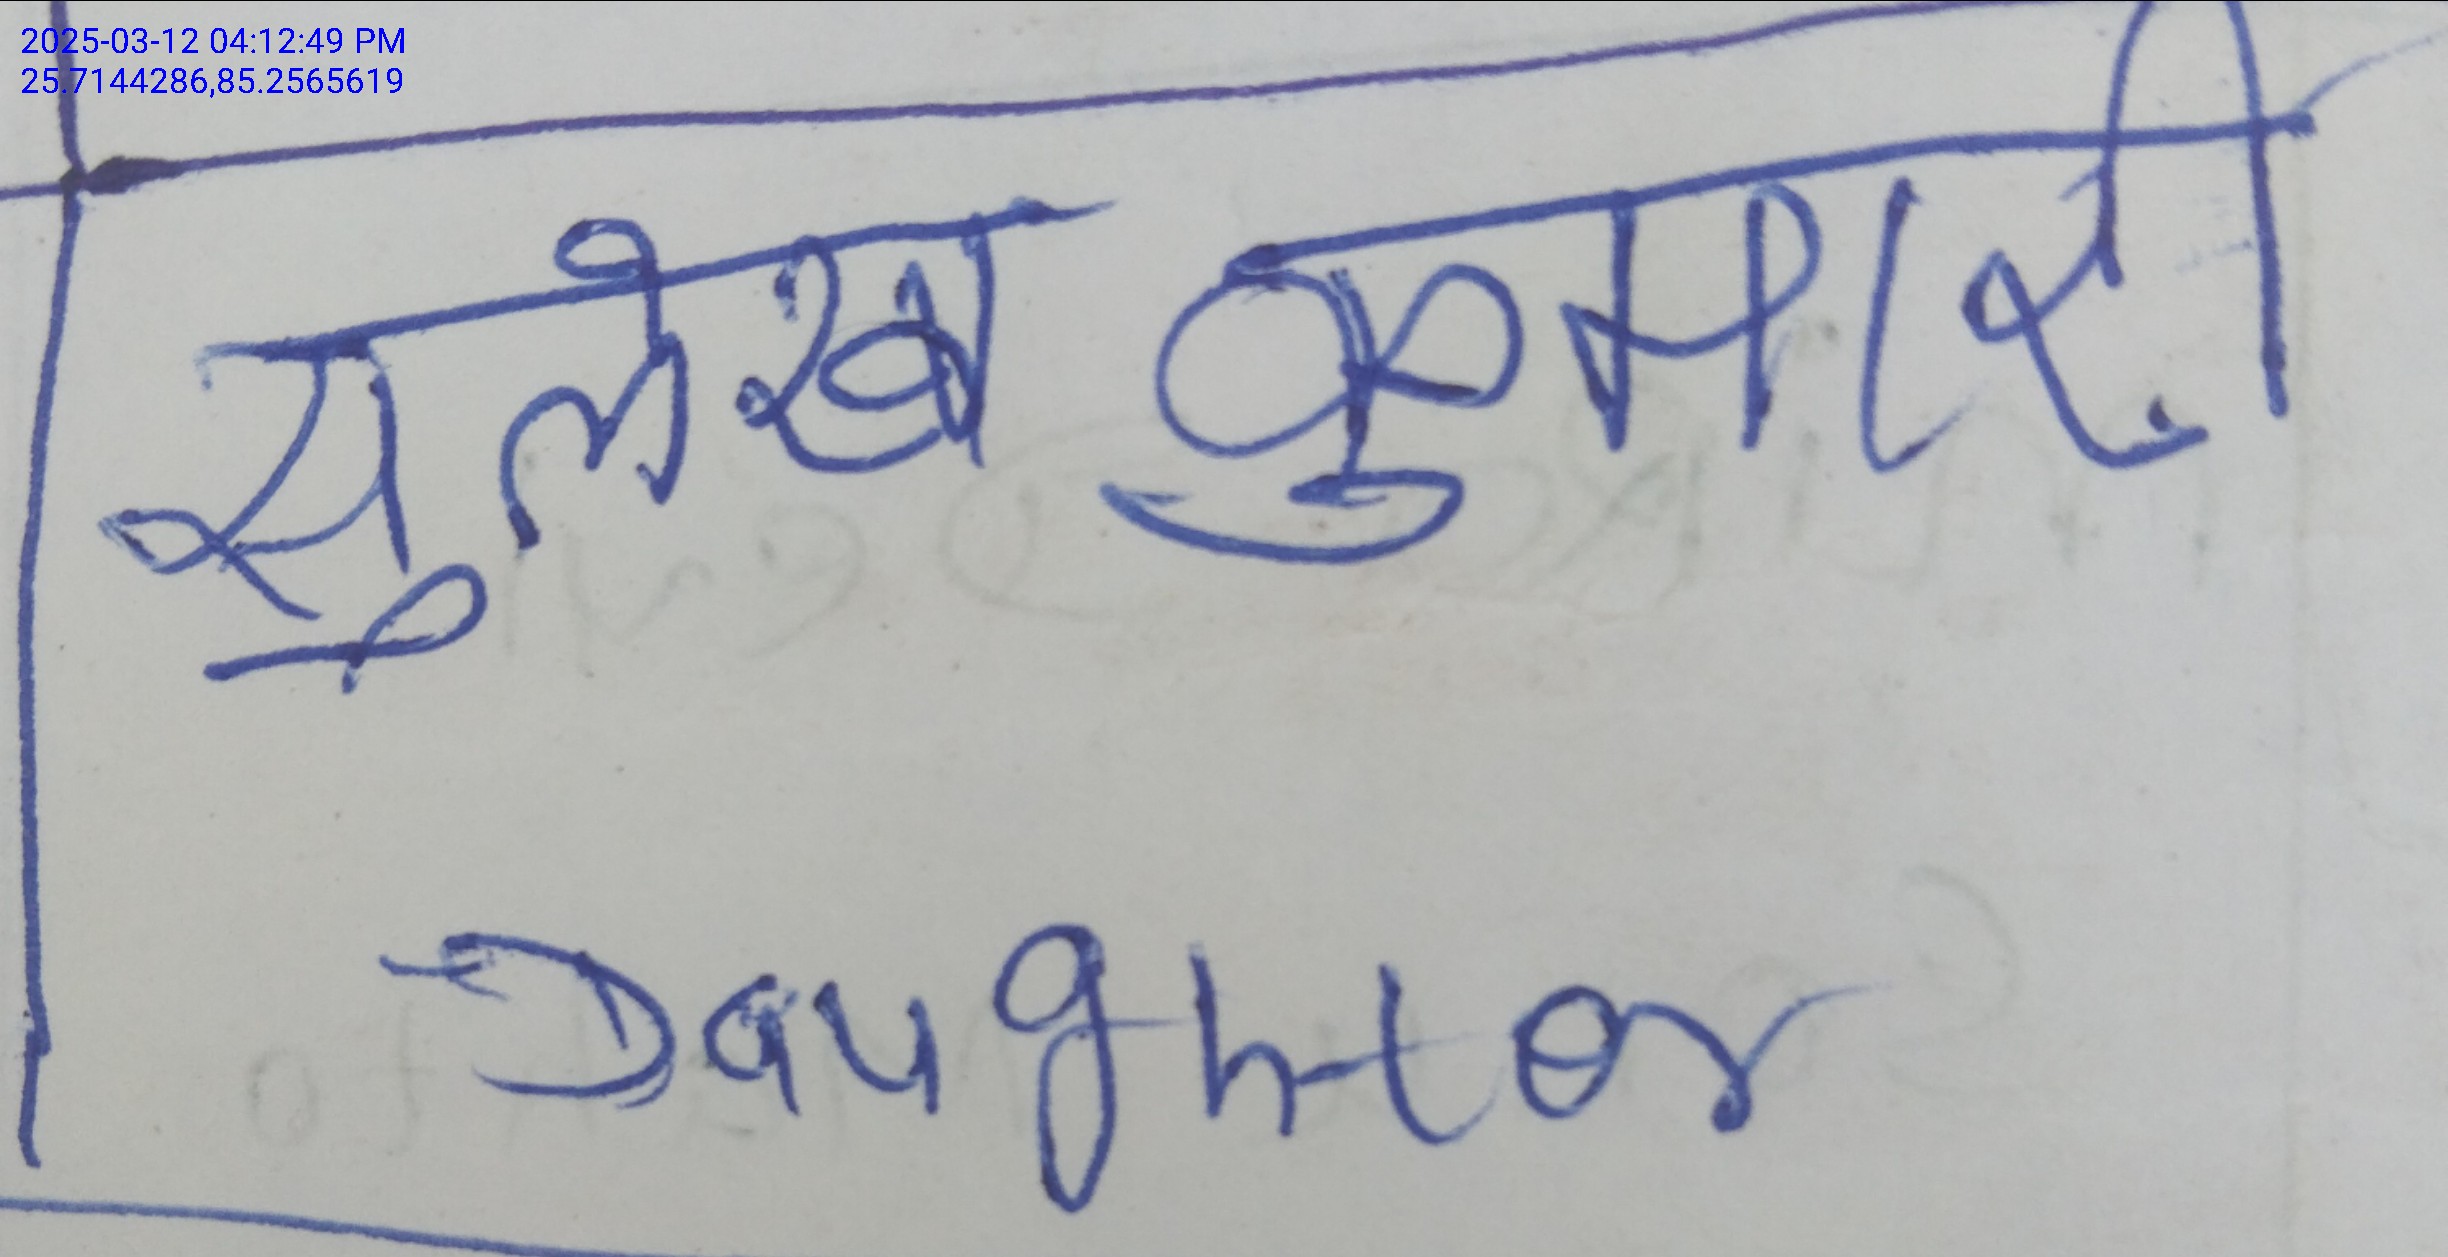 2025-03-12 04:12:49 PM
25.7144286,85.2565619
सुलेख कुमारी
Daughter